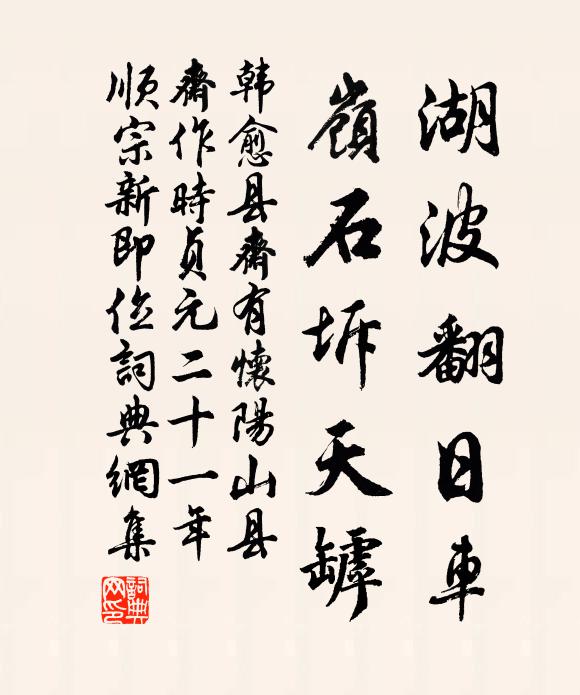 湖波翻日車
嶺石坼天罅
韩愈县齋有懷陽山县
齋作時貞元二十一年
順宗新即位詞典網集
詞典
网印